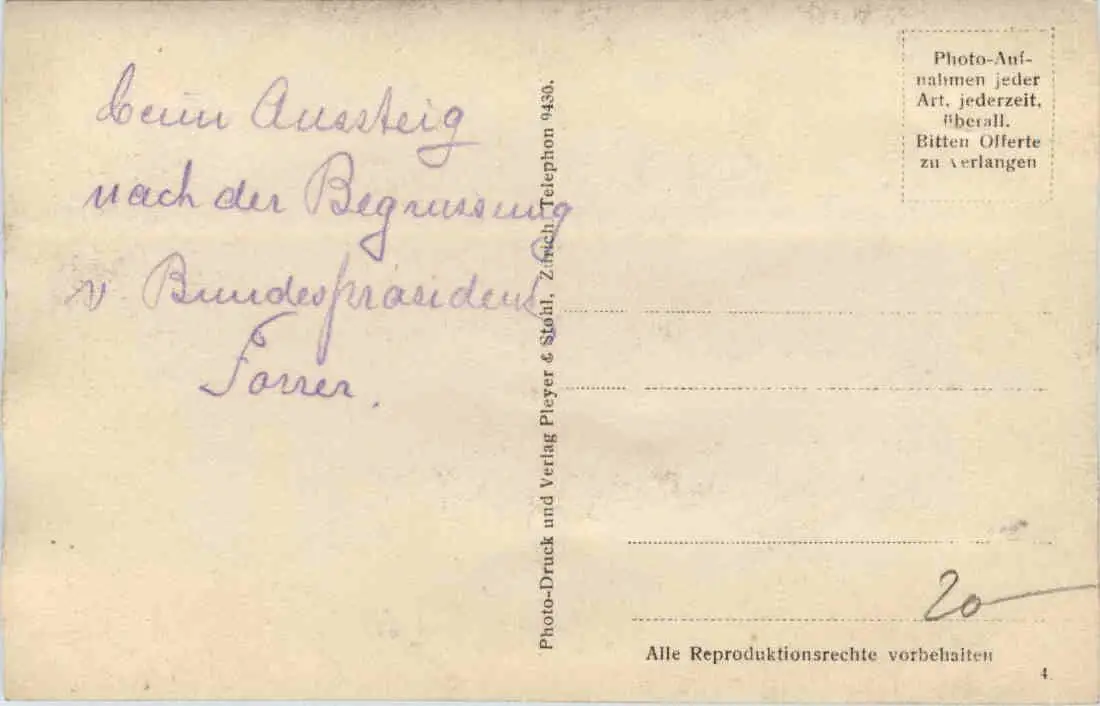 beim Aussteig
nach der Begrüssung
v. Bundespräsident
Forrer.
Photo-Druck und Verlag Pleyer & Stohl, Zürich, Telephon 9430.
Photo-Auf-
nahmen jeder
Art, jederzeit,
überall.
Bitten Offerte
zu verlangen
20
Alle Reproduktionsrechte vorbehalten
4